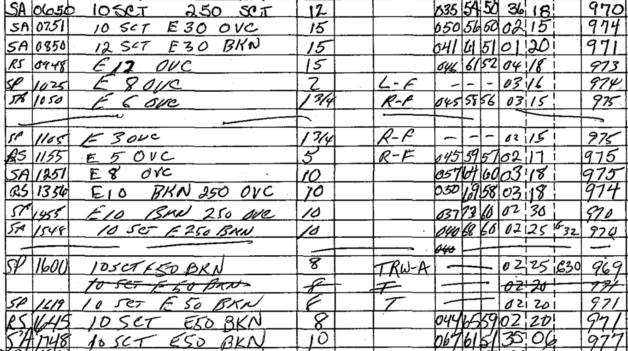 SA 0650 10SCT 250 SCT 12 035 54 50 36 18 970
SA 0751 10 SCT E 30 OVC 15 050 56 50 02 15 974
SA 0850 12 SCT E30 BKN 15 041 61 51 01 20 971
RS 0948 E 12 OVC 15 046 61 52 04 18 973
SP 1025 E 8 OVC 2 L-F - - - 03 16 974
SA 1050 E 6 OVC 1 3/4 R-F 045 58 56 03 15 975
SP 1105 E 3 OVC 1 3/4 R-F - - - 02 15 975
RS 1155 E 5 OVC 5 R-F 045 59 57 02 17 975
SA 1251 E 8 OVC 10 057 64 60 03 18 975
RS 1356 E10 BKN 250 OVC 10 050 69 58 03 18 974
SA 1455 E10 BKN 250 OVC 10 037 73 60 02 30 970
SA 1548 10 SCT E250 BKN 10 040 68 60 02 25 G32 970
040
SP 1600 10SCT E50 BKN 8 TRW-A 02 25 G30 969
10 SCT E 50 BKN 8 T 02 20 971
SP 1619 10 SCT E 50 BKN 8 T 02 20 971
RS 1645 10 SCT E50 BKN 8 044 65 59 02 20 971
SA 1748 10 SCT E50 BKN 10 067 61 51 35 06 977